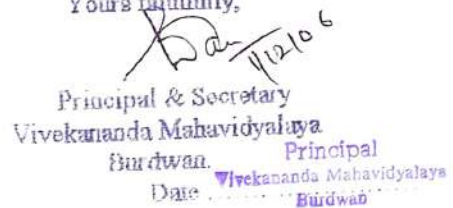 Yours faithfully,
1/12/06
Principal & Secretary
Vivekananda Mahavidyalaya
Burdwan.
Date ........
Principal
Vivekananda Mahavidyalaya
Burdwan